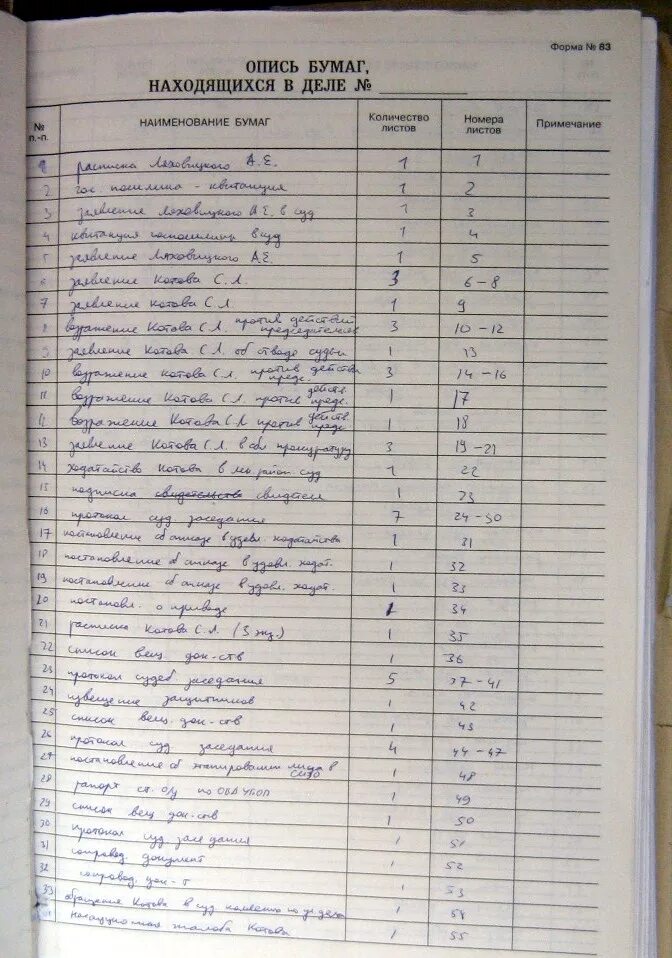 Форма № 83
ОПИСЬ БУМАГ,
НАХОДЯЩИХСЯ В ДЕЛЕ №
№ п.-п. НАИМЕНОВАНИЕ БУМАГ Количество листов Номера листов Примечание
1 расписка Ляховицкого А.Е. 1 1
2 гос. пошлина - квитанция 1 2
3 заявление Ляховицкого А.Е. в суд 1 3
4 квитанция госпошлины в суд 1 4
5 заявление Ляховицкого А.Е. 1 5
6 заявление Котова С.Л. 3 6-8
7 заявление Котова С.Л. 1 9
8 возражение Котова С.Л. против действий председателев 3 10-12
9 заявление Котова С.Л. об отводе судьи 1 13
10 возражение Котова С.Л. против действи предс. 3 14-16
11 возражение Котова С.Л. против действ. предс. 1 17
12 возражение Котова С.Л. против действ. предс. 1 18
13 заявление Котова С.Л. в обл прокуратуру 3 19-21
14 ходатайство Котова в суд 1 22
15 подписка свидетел 1 23
16 протокол суд заседания 7 24-30
17 постановление об отказе в удовл. ходатайства 1 31
18 постановление об отказе в удовл. ходат. 1 32
19 постановление об отказе в удовл. ходат. 1 33
20 постановл. о приводе 1 34
21 расписка Котова С.Л. (3 экз.) 1 35
22 список вещ. док-ств 1 36
23 протокол судеб заседания 5 37-41
24 извещение защитников 1 42
25 список вещ. док-ств 1 43
26 протокол суд заседания 4 44-47
27 постановление об этапировании лица в СИЗО 1 48
28 рапорт ст. о/у по ОВД УБОП 1 49
29 список вещ док-ств 1 50
30 протокол суд заседания 1 51
31 сопровод. документ 1 52
32 сопровод. док-т 1 53
33 обращение Котова в суд 1 54
кассационная жалоба Котова 1 55